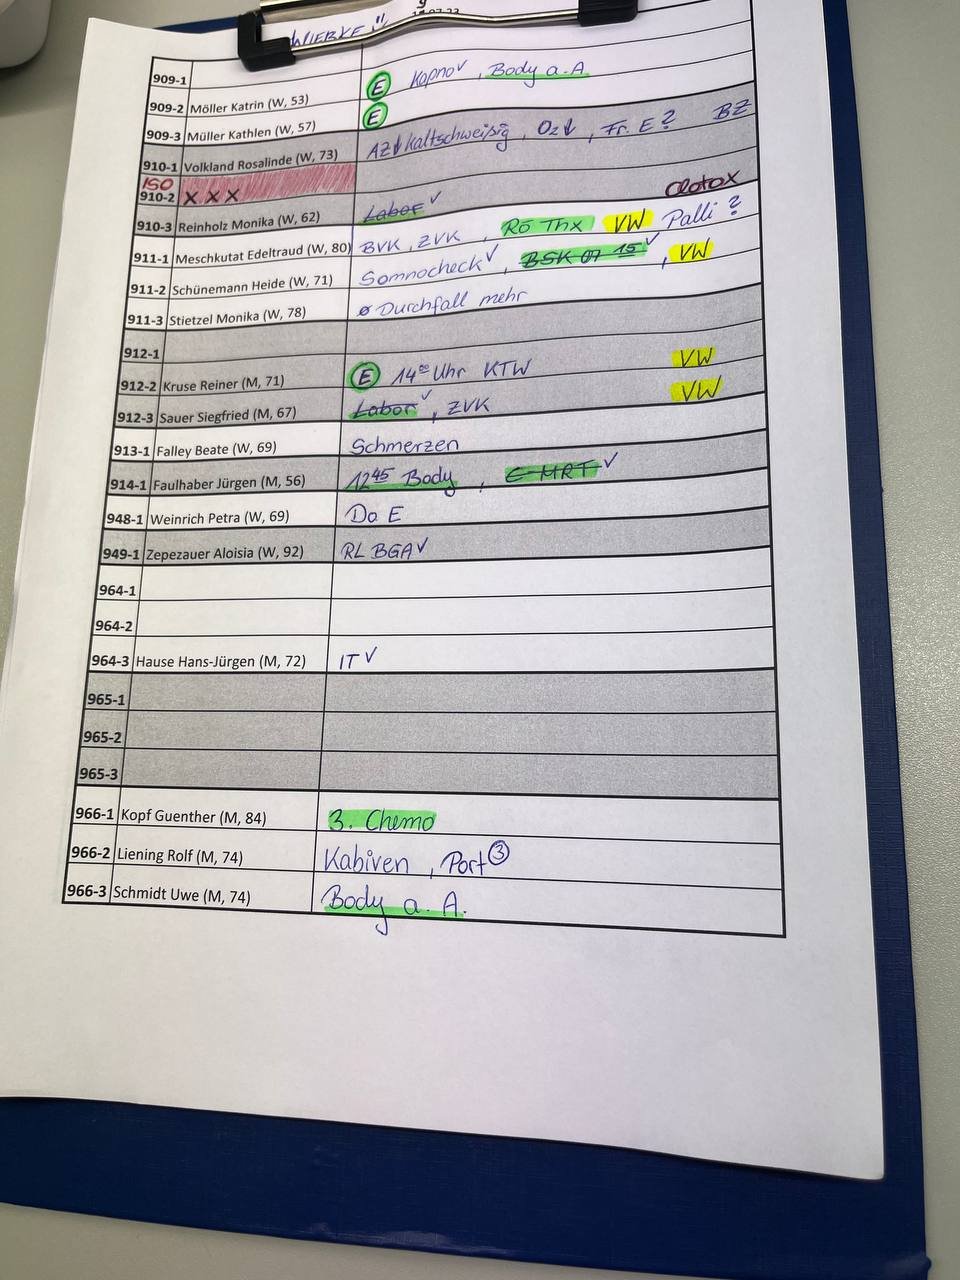 WIEBKE
909-1
909-2 Möller Katrin (W, 53) E Kapno✓, Body a.A
909-3 Müller Kathlen (W, 57) E
910-1 Volkland Rosalinde (W, 73) AZ↓ kaltschweißig, O2↓, Fr. E? BZ
ISO
910-2 X X X
910-3 Reinholz Monika (W, 62) Labor ✓
911-1 Meschkutat Edeltraud (W, 80) BVK, ZVK, Rö Thx VW Palli?
911-2 Schünemann Heide (W, 71) Somnocheck✓, BSK 07 15 ✓, VW
911-3 Stietzel Monika (W, 78) ø Durchfall mehr
912-1
912-2 Kruse Reiner (M, 71) E 14°° Uhr KTW VW
912-3 Sauer Siegfried (M, 67) Labor ✓, ZVK VW
913-1 Falley Beate (W, 69) Schmerzen
914-1 Faulhaber Jürgen (M, 56) 12 45 Body, C-MRT ✓
948-1 Weinrich Petra (W, 69) Do E
949-1 Zepezauer Aloisia (W, 92) RL BGA ✓
964-1
964-2
964-3 Hause Hans-Jürgen (M, 72) IT ✓
965-1
965-2
965-3
966-1 Kopf Guenther (M, 84) 3. Chemo
966-2 Liening Rolf (M, 74) Kabiven, Port ③
966-3 Schmidt Uwe (M, 74) Body a. A.